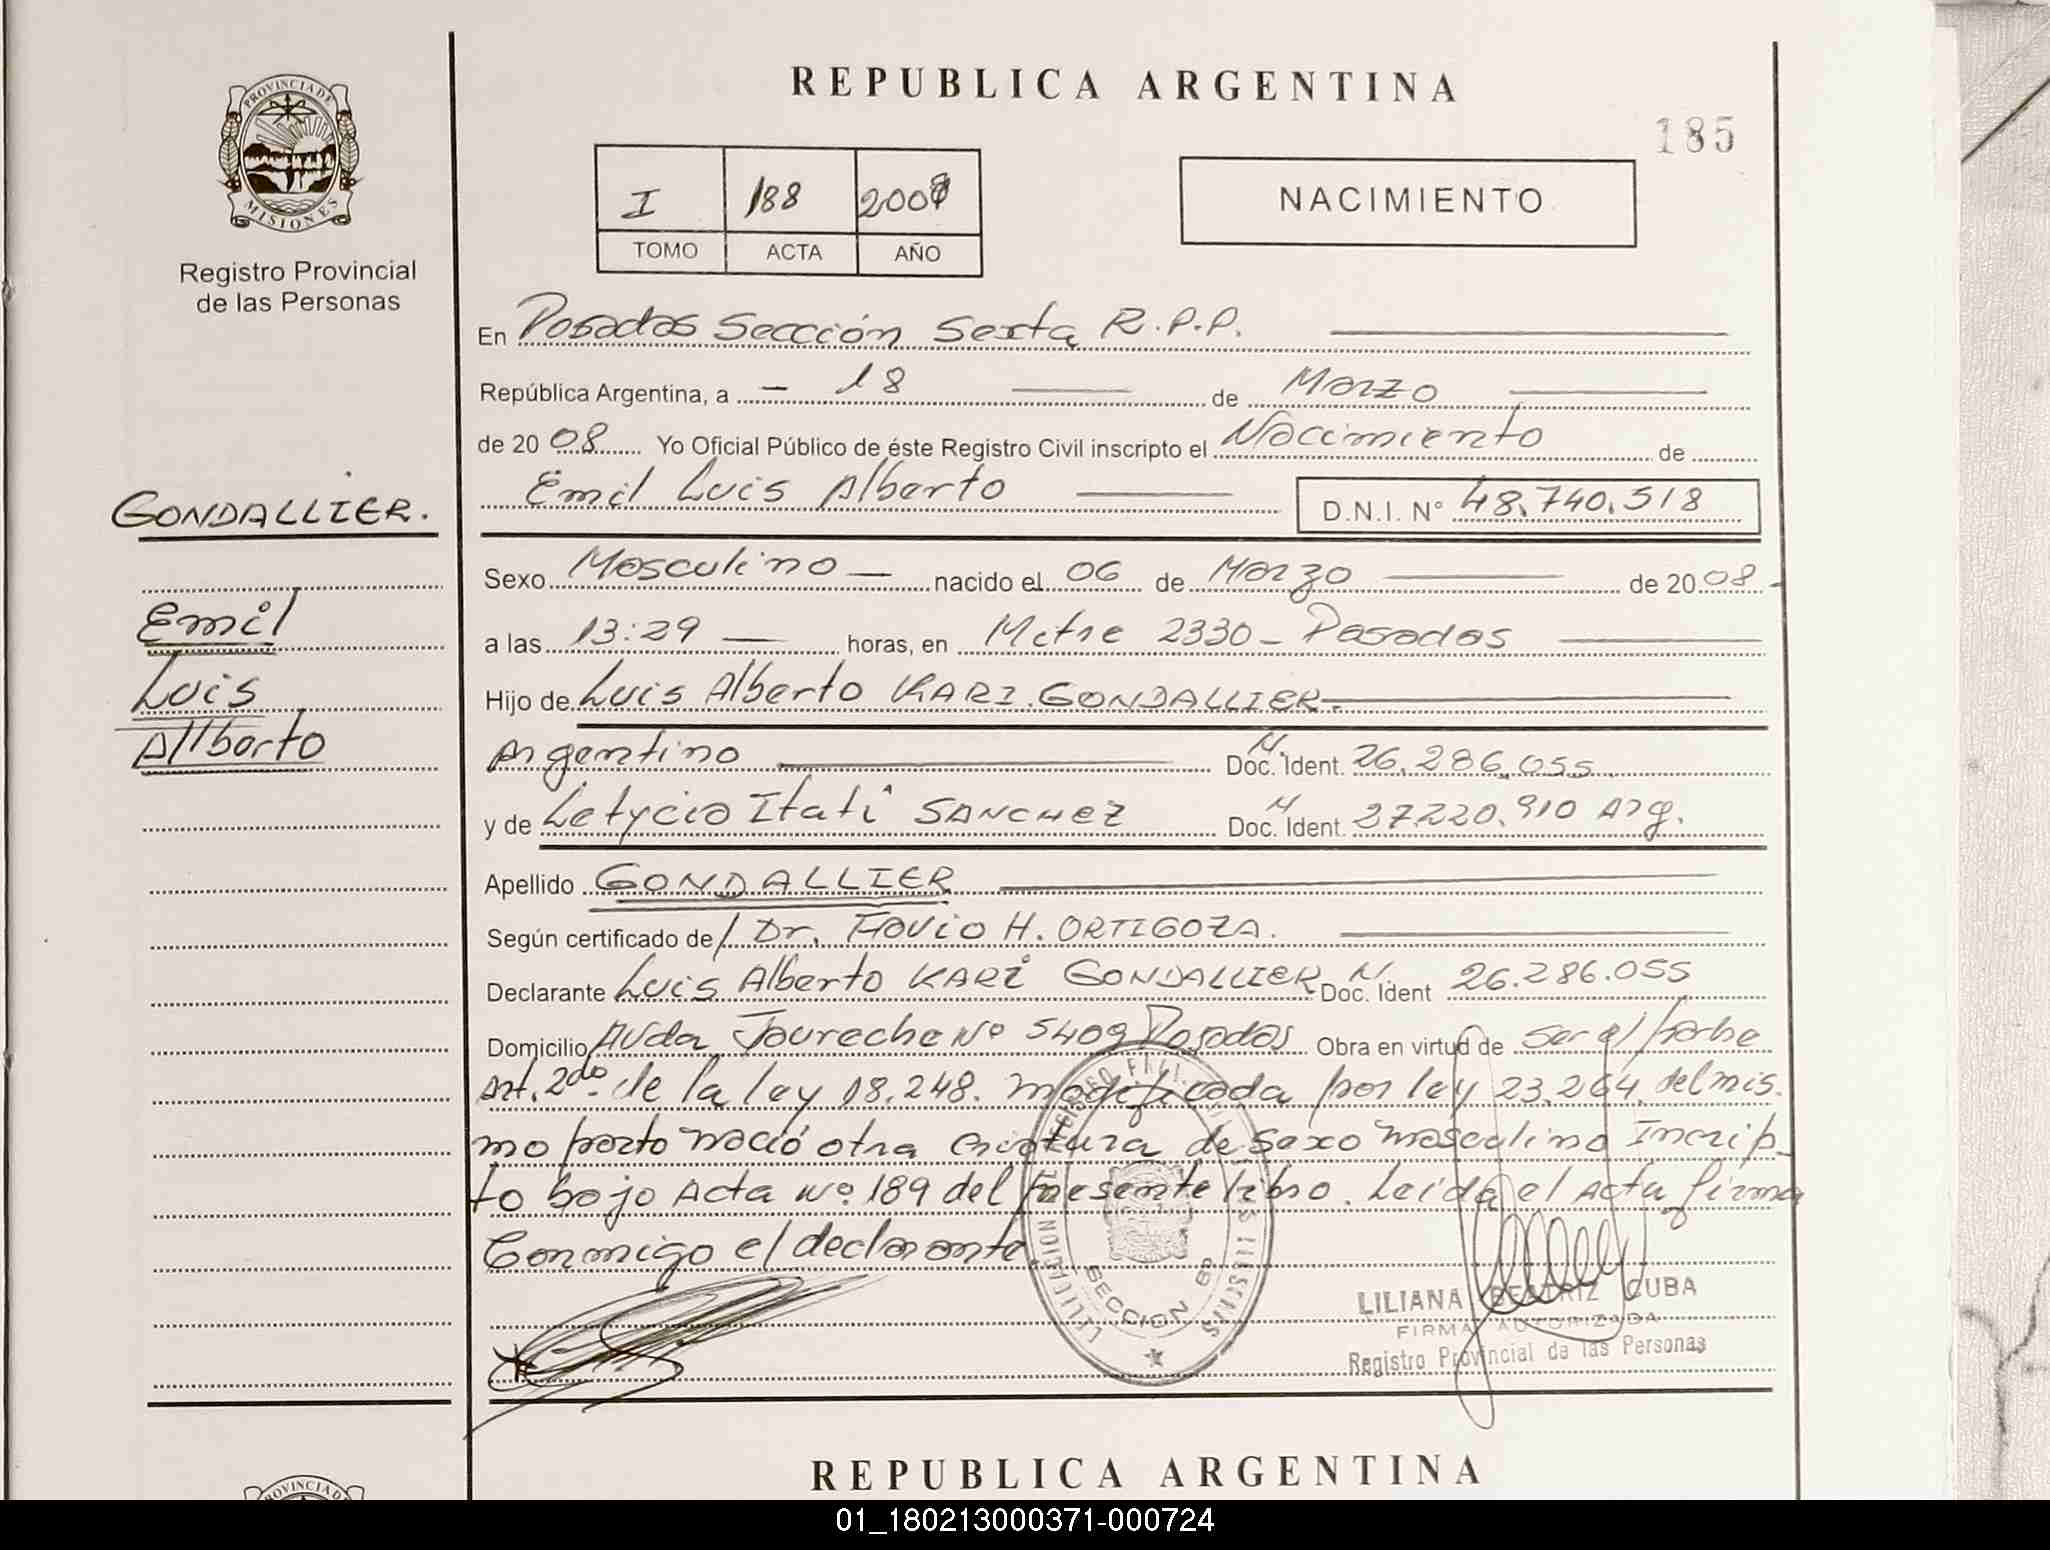 REPUBLICA ARGENTINA
185
PROVINCIA DE
MISIONES
Registro Provincial
de las Personas
I 188 2008
TOMO ACTA AÑO
NACIMIENTO
En Posadas Sección Sexta R.P.P.
República Argentina, a - 18 de Marzo
de 20 08 Yo Oficial Público de éste Registro Civil inscripto el Nacimiento de
Emil Luis Alberto D.N.I. N° 48.740.518
GONDALLIER.
Emil
Luis
Allberto
Sexo Masculino - nacido el 06 de Marzo de 20 08 -
a las 13:29 horas, en Mitre 2330 - Posadas
Hijo de Luis Alberto KARI GONDALLIER.
Argentino Doc. Ident. M. 26.286.055
y de Letycia Itatí SANCHEZ Doc. Ident. M 27.220.910 Arg.
Apellido GONDALLIER
Según certificado de / Dr. Flavio H. ORTIGOZA.
Declarante Luis Alberto KARI GONDALLIER Doc. Ident N. 26.286.055
Domicilio Avda Jaureche N° 5409 Posadas Obra en virtud de Ser el
Art. 2do. de la ley 18.248. modificada por ley 23.264. del mis.
mo parto nació otra criatura de Sexo masculino Incrip-
to bajo Acta N° 189 del presente libro. Leída el Acta firma
Conmigo el declarante.
SECCION 6º
LILIANA BEATRIZ CUBA
FIRMA AUTORIZADA
Registro Provincial de las Personas
REPUBLICA ARGENTINA
PROVINCIA D
01_180213000371-000724